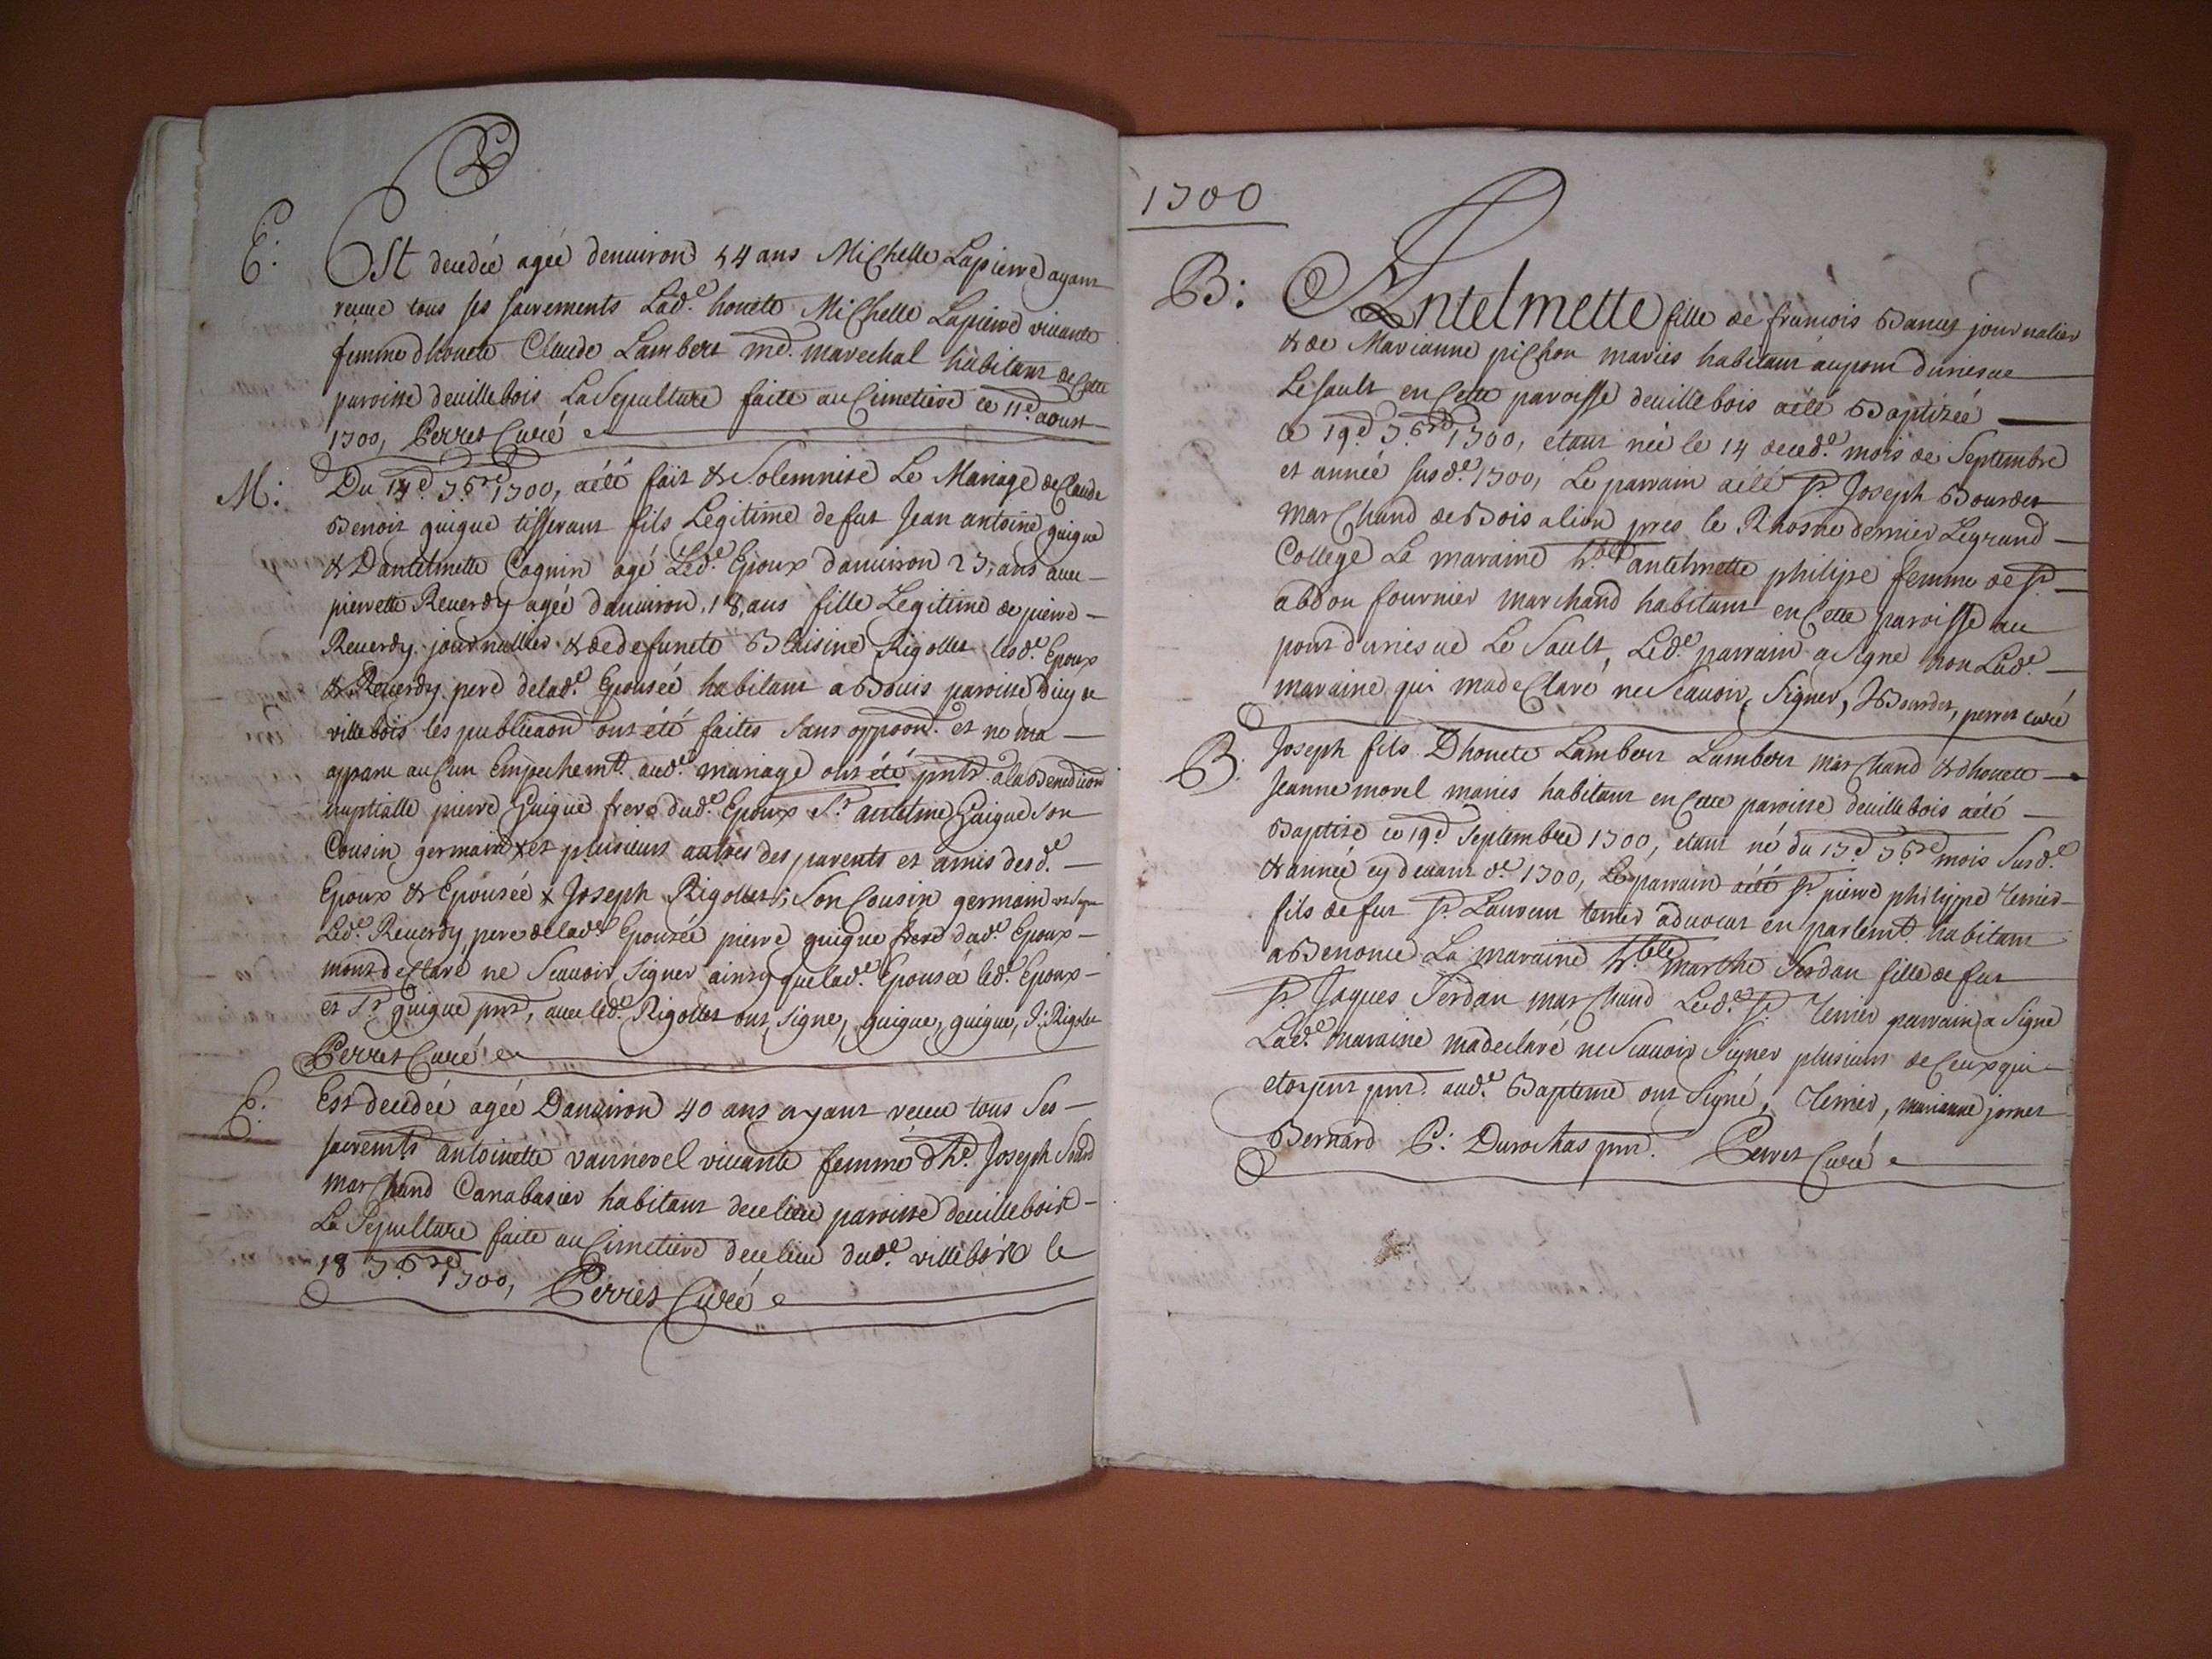 E: Est decedée agée denuiron 54 ans Michelle Lapierre ayant
receue tous ses sacrements Lad.e honete Michelle Lapierre viuante
femme dhonete Claude Lambert md. marechal habitant de Cette
paroisse deuillebois La Sepulture faite au Cimetiere ce 11.e aoust
1700, Perret Curé
M: Du 14.e 7.bre 1700, aété fait & Solemnisé Le Mariage de Claude
Benoit guigue tisserant fils Legitime de fut Jean antoine guigue
& Dantelmette Cognin agé Led.e Epoux danuiron 23, ans auec
pierrette Reuerdy agée danuiron, 18, ans fille Legitime de pierre
Reuerdy journallier & de defuncte Blaisine Rigollet lesd.e Epoux
& Reuerdy pere delad.e Epousée habitant a Bouis paroisse dicy de
villebois les publicaon ont été faites Sans opposon. et ne ma
apparu auCun Empechemt. aud.e mariage ont été pnts. a la Benediction
nuptialle pierre Guigue frere dud.e Epoux Sr. antelme Guigue Son
Cousin germain x et plusieurs autres des parents et amis desd.e
Epoux & Epousée x Joseph Rigollet, Son Cousin germain
Led.e Reuerdy pere delad.e Epousée pierre guigue frere dud.e Epoux
mont deClaré ne Scauoir Signer ainsy quelad.e Epousée led.e Epoux
et Sr. guigue pnt, auec led.e Rigollet ont Signe, guigue, guigue, J: Rigolet
Perret Curé
E: Est decedée agée Danuiron 40 ans ayant receu tous Ses
sacremts antoinette vannerel viuante femme dhe. Joseph
marchand Canabasier habitant decelieu paroisse deuillebois
La Sepulture faite au Cimetiere decelieu dud.e villebois le
18 7.bre 1700, Perret Curé
1700
B: Antelmette fille de francois Banet journalier
& de Marianne pichon mariés habitant aupont duriesue
Le Sault en Cette paroisse deuillebois aété Baptizée
ce 19.e 7.bre 1700, etant née le 14 deced.e mois de Septembre
et année susd.e 1700, Le parrain aété Sr. Joseph Bourdet
marchand de Bois alion pres le Rhosne dernier Legrand
College La maraine h.ble antelmette philipe femme de Sr.
abdon fournier marchand habitant en Cette paroisse au
pont duriesue Le Sault, Led.e parrain a Signe non Lad.e
maraine qui madeClaré ne Scauoir Signer, J Bourdet, perret curé
B: Joseph fils Dhonete Lambert Lambert marchand & dhonete
Jeanne morel mariés habitant en Cette paroisse deuillebois aété
Baptise ce 19.e Septembre 1700, etant né du 17.e 7.bre mois Susd.e
& année cy deuant d.e 1700, Le parrain aété Sr. pierre philippe Terrier
fils de fut Sr. Laurent terrier aduocat en parlemt. habitant
a Benonce La maraine h.ble marthe Serdan fille de fut
Sr. Jaques Serdan marchand Led.e Sr. Terrier parrain a Signe
Lad.e maraine madeclaré ne Scauoir Signer plusieurs de Ceux qui
etoyent pnt. aud.e Bapteme ont Signé, Terrier, marianne jornet
Bernard P: Durochas pnt. Perret Curé